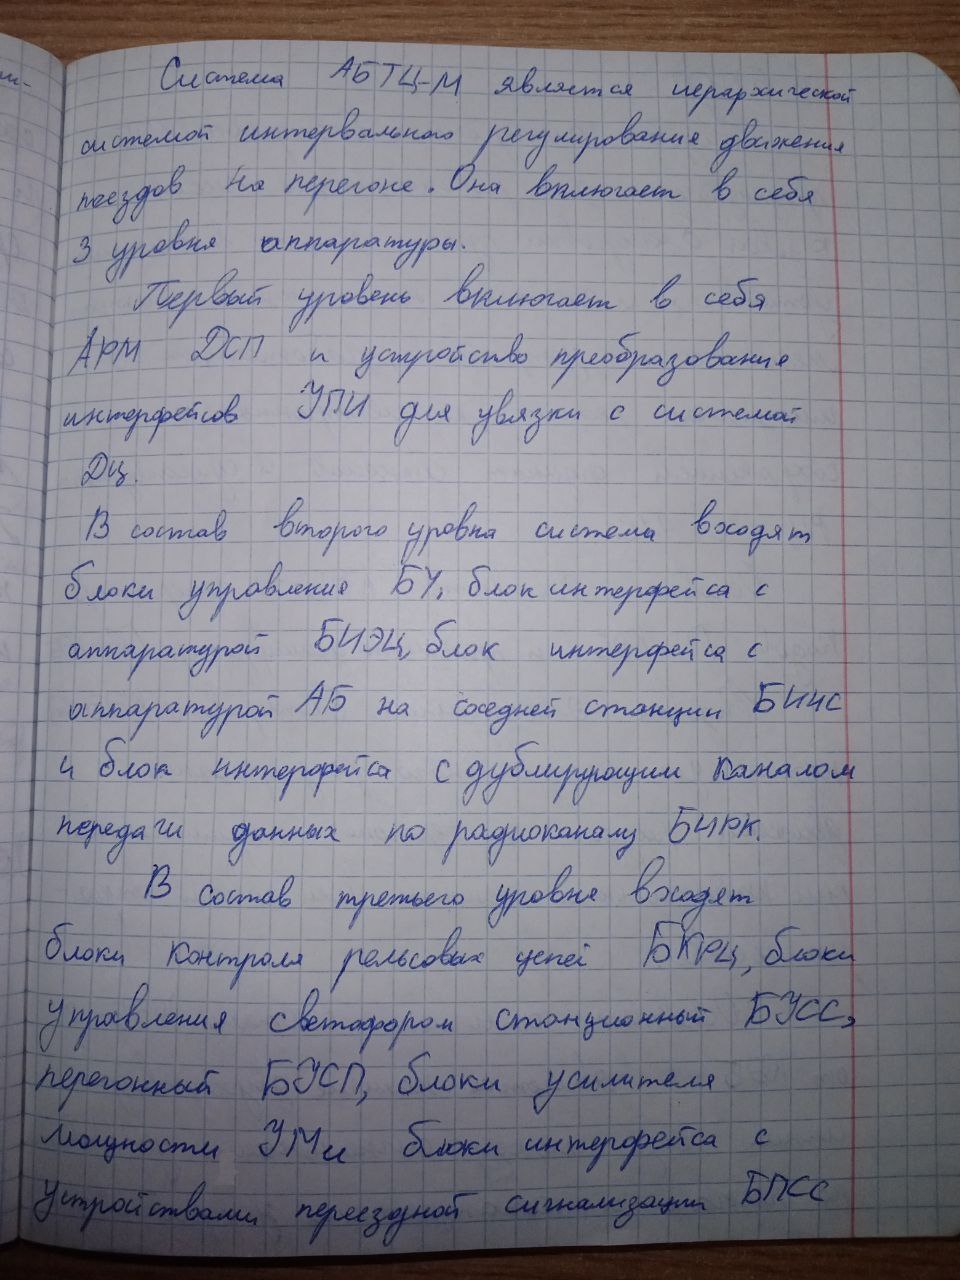 Система АБТЦ-М является иерархической
системой интервального регулирования движения
поездов на перегоне. Она включает в себя
3 уровня аппаратуры.
Первый уровень включает в себя
АРМ ДСП и устройство преобразования
интерфейсов УПИ для увязки с системой
ДЦ.
В состав второго уровня система входят
блоки управления БУ, блок интерфейса с
аппаратурой БИЭЦ, блок интерфейса с
аппаратурой АБ на соседней станции БИЧС
и блок интерфейса с дублирующим каналом
передачи данных по радиоканалу БИРК.
В состав третьего уровня входят
блоки контроля рельсовых цепей БКРЦ, блоки
управления светофором станционный БУСС,
перегонный БУСП, блоки усилителя
мощности УМ и блоки интерфейса с
устройствами переездной сигнализации БПСС